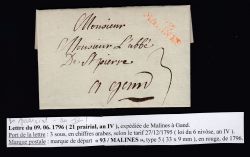 93
MALINES
Monsieur
Monsieur L'abbé
De St pierre
a gand
3
Lettre du 09. 06. 1796 ( 21 prairial, an IV ), expédiée de Malines à Gand.
Port de la lettre : 3 sous, en chiffres arabes, selon le tarif 27/12/1795 ( loi du 6 nivôse, an IV ).
Marque postale : marque de départ « 93 / MALINES », type 5 ( 33 x 9 mm ), en rouge, de 1796.